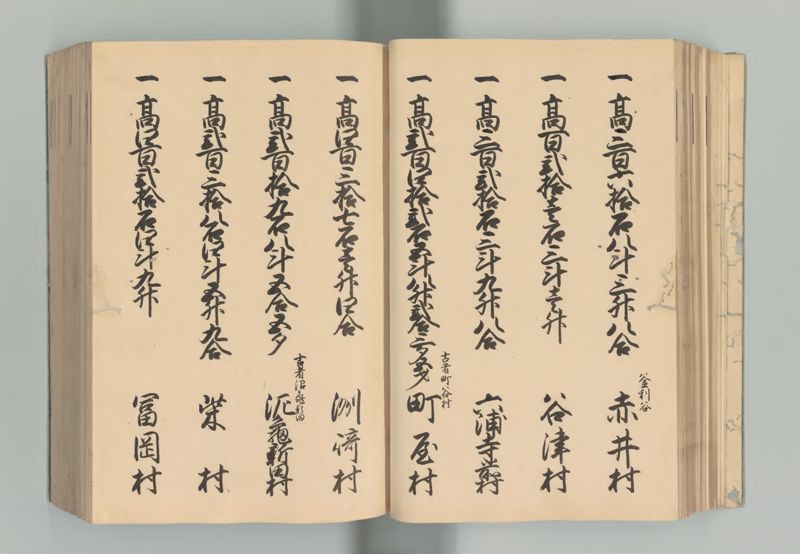 一 高三百六拾石八斗三升八合
釜利谷
赤井村
一 高百弐拾壱石三斗壱升
谷津村
一 高三百弐拾石三斗九升八合
六浦寺分村
一 高弐百四拾弐石五斗八升弐合三夕
古者町谷村
町屋村
一 高四百三拾七石壱升四合
洲崎村
一 高弐百拾九石八斗五合五夕
古者沼亀新田
泥亀新田村
一 高弐百三拾八石四斗五升九合
柴村
一 高四百弐拾石四斗九升
冨岡村